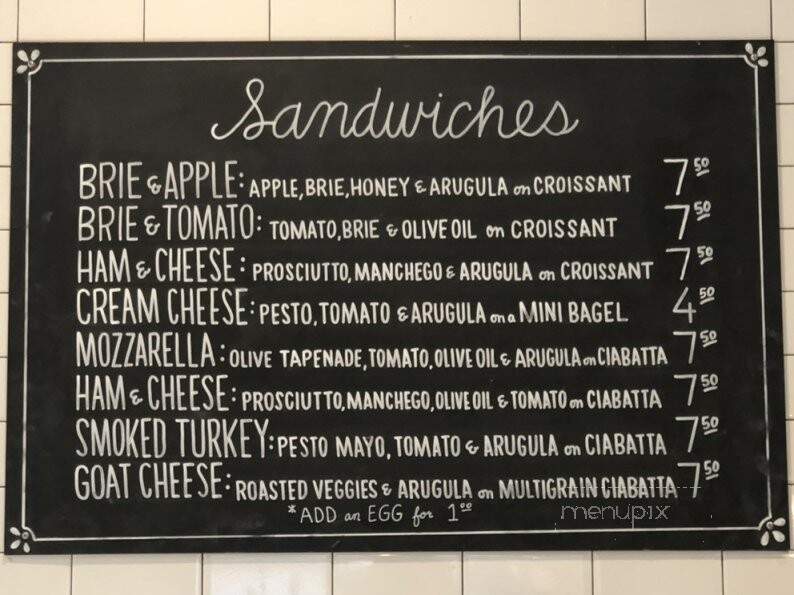 Sandwiches
BRIE & APPLE: APPLE, BRIE, HONEY & ARUGULA on CROISSANT 7 50
BRIE & TOMATO: TOMATO, BRIE & OLIVE OIL on CROISSANT 7 50
HAM & CHEESE: PROSCIUTTO, MANCHEGO & ARUGULA on CROISSANT 7 50
CREAM CHEESE: PESTO, TOMATO & ARUGULA on a MINI BAGEL 4 50
MOZZARELLA: OLIVE TAPENADE, TOMATO, OLIVE OIL & ARUGULA on CIABATTA 7 50
HAM & CHEESE: PROSCIUTTO, MANCHEGO, OLIVE OIL & TOMATO on CIABATTA 7 50
SMOKED TURKEY: PESTO MAYO, TOMATO & ARUGULA on CIABATTA 7 50
GOAT CHEESE: ROASTED VEGGIES & ARUGULA on MULTIGRAIN CIABATTA 7 50
*ADD an EGG for 1 00
menupix